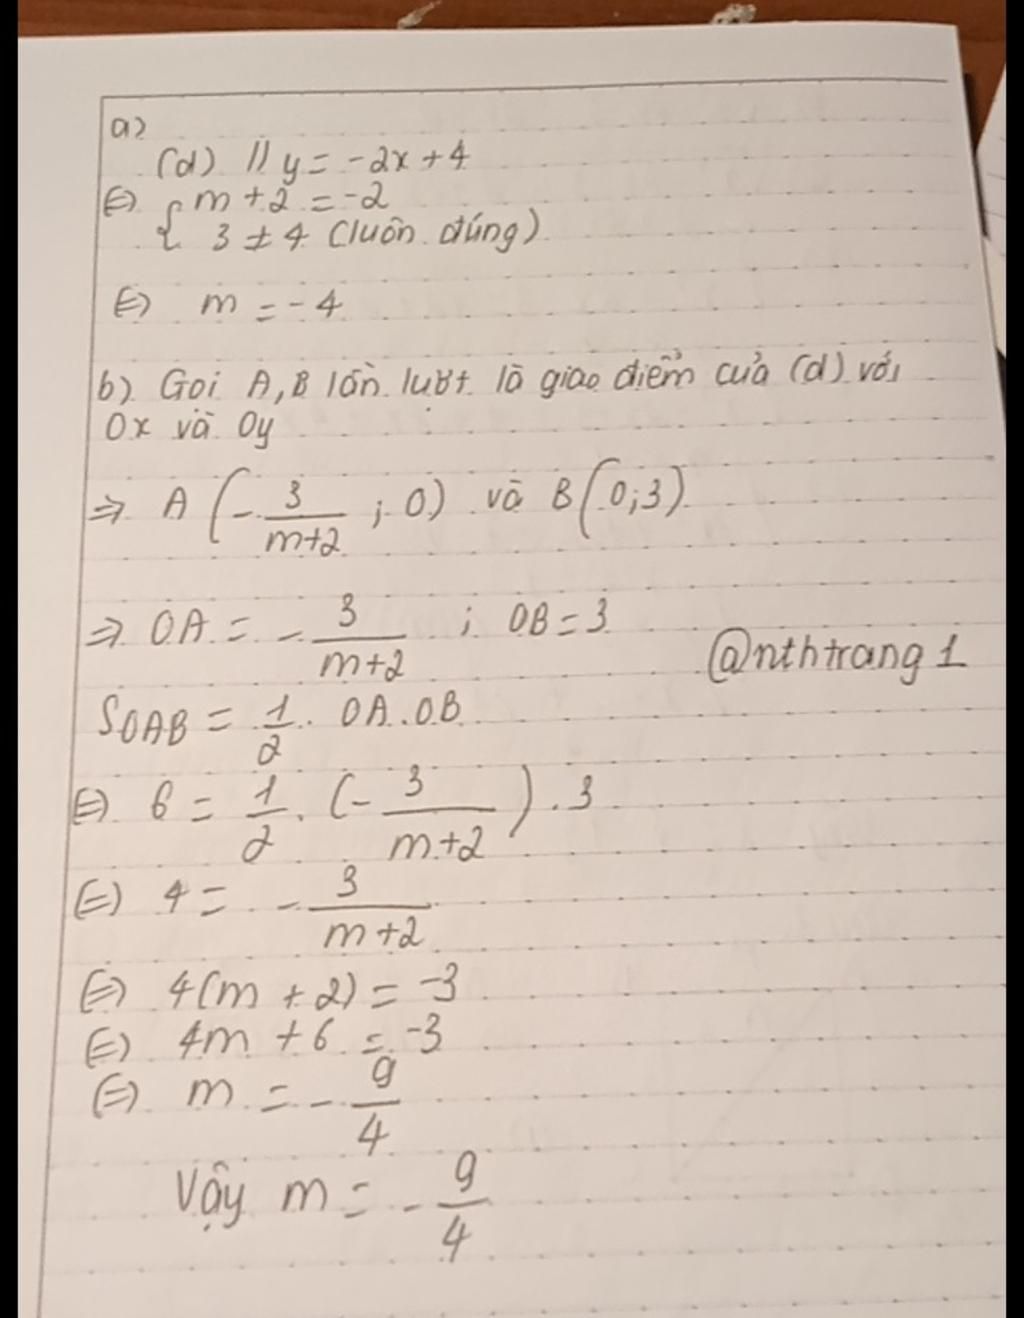 a)
(d) // y = -2x + 4
⇔ { m + 2 = -2
3 ≠ 4 (luôn đúng)
⇔ m = -4
b) Gọi A, B lần lượt là giao điểm của (d) với
Ox và Oy
⇒ A (-3/(m+2) ; 0) và B (0;3)
⇒ OA = -3/(m+2) ; OB = 3
@nthtrang1
SOAB = 1/2 . OA . OB
⇔ 6 = 1/2 . (-3/(m+2)) . 3
⇔ 4 = -3/(m+2)
⇔ 4(m + 2) = -3
⇔ 4m + 6 = -3
⇔ m = -9/4
Vậy m = -9/4